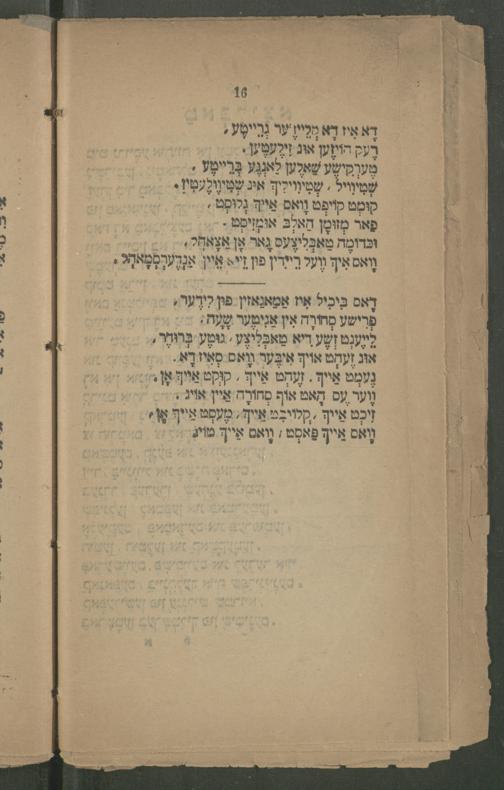 16
דָא אִיז דָא קְלֵייזֶער גְרֵייטֶע,
רֶעק הויזֶען אוּנ זִילֶעטֶען.
טֶערְקִישֶע שַאלֶען לַאנְגֶע בְּרֵייטֶע,
שְטִיוִויל, שְטִיוִוילִיךְ אוּנ שְטִיוִוילֶעטִין.
קוּמְט קוֹיפְט וָואס אַייךְ גְלוּסְט,
פַאר מְזוּמָן הַאלְבּ אוּמְזִיסְט.
וּכְדוֹמֶה טַאבְּלִיצֶעס גָאר אָן אַצָאהְל,
וָואס אִיךְ וֶועל רֵיידִין פוּן זֵייא אֵיין אַנְדֶערְסְמָאהְל.
דָאס בִּיכִיל אִיז אַמַאגַאזִין פוּן לִידֶער,
פְרִישֶע סְחוֹרָה אִין אַנִיטֶער שָעָה,
לֵייעֶנְט זְשֶע דִיא טַאבְּלִיצֶע, גוּטֶע בְּרוּדֶר,
אוּנ זֶעהְט אוֹיךְ אִיבֶּער וָואס סְאִיז דָא.
נֶעמְט אַייךְ. זֶעהְט אַייךְ, קוּקְט אַייךְ אָן.
וֶוער עֶס הָאט אוֹף סְחוֹרָה אַיין אוֹיג.
זִיכְט אַייךְ, קְלוֹיבְּט אַייךְ, מֶעסְט אַייךְ אָן,
וָואס אַייךְ פַּאסְט, וָואס אַייךְ טוֹיג